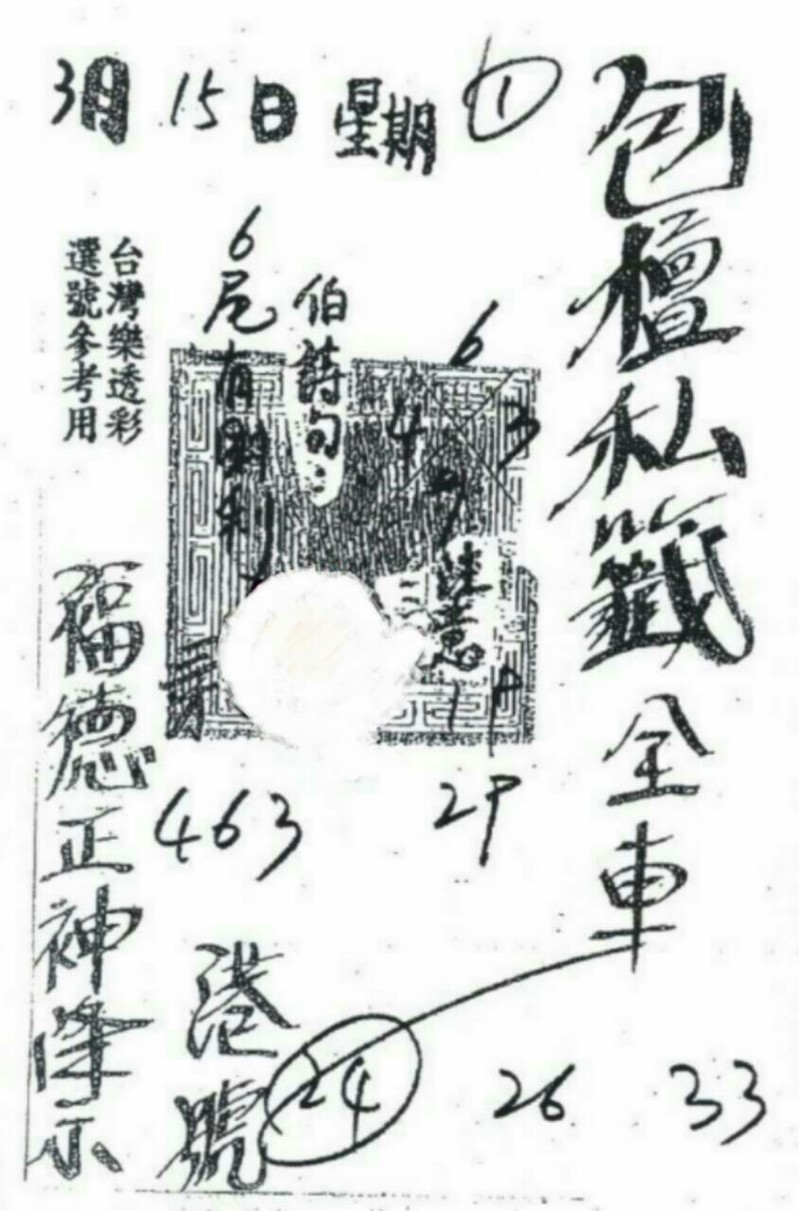 3月 15日 星期 ①
包壇私籤全車
6
4 3
9
注意
19
29
伯詩句:
6尾有勝利
463
台灣樂透彩
選號參考用
福德正神降示
港號
24 26 33